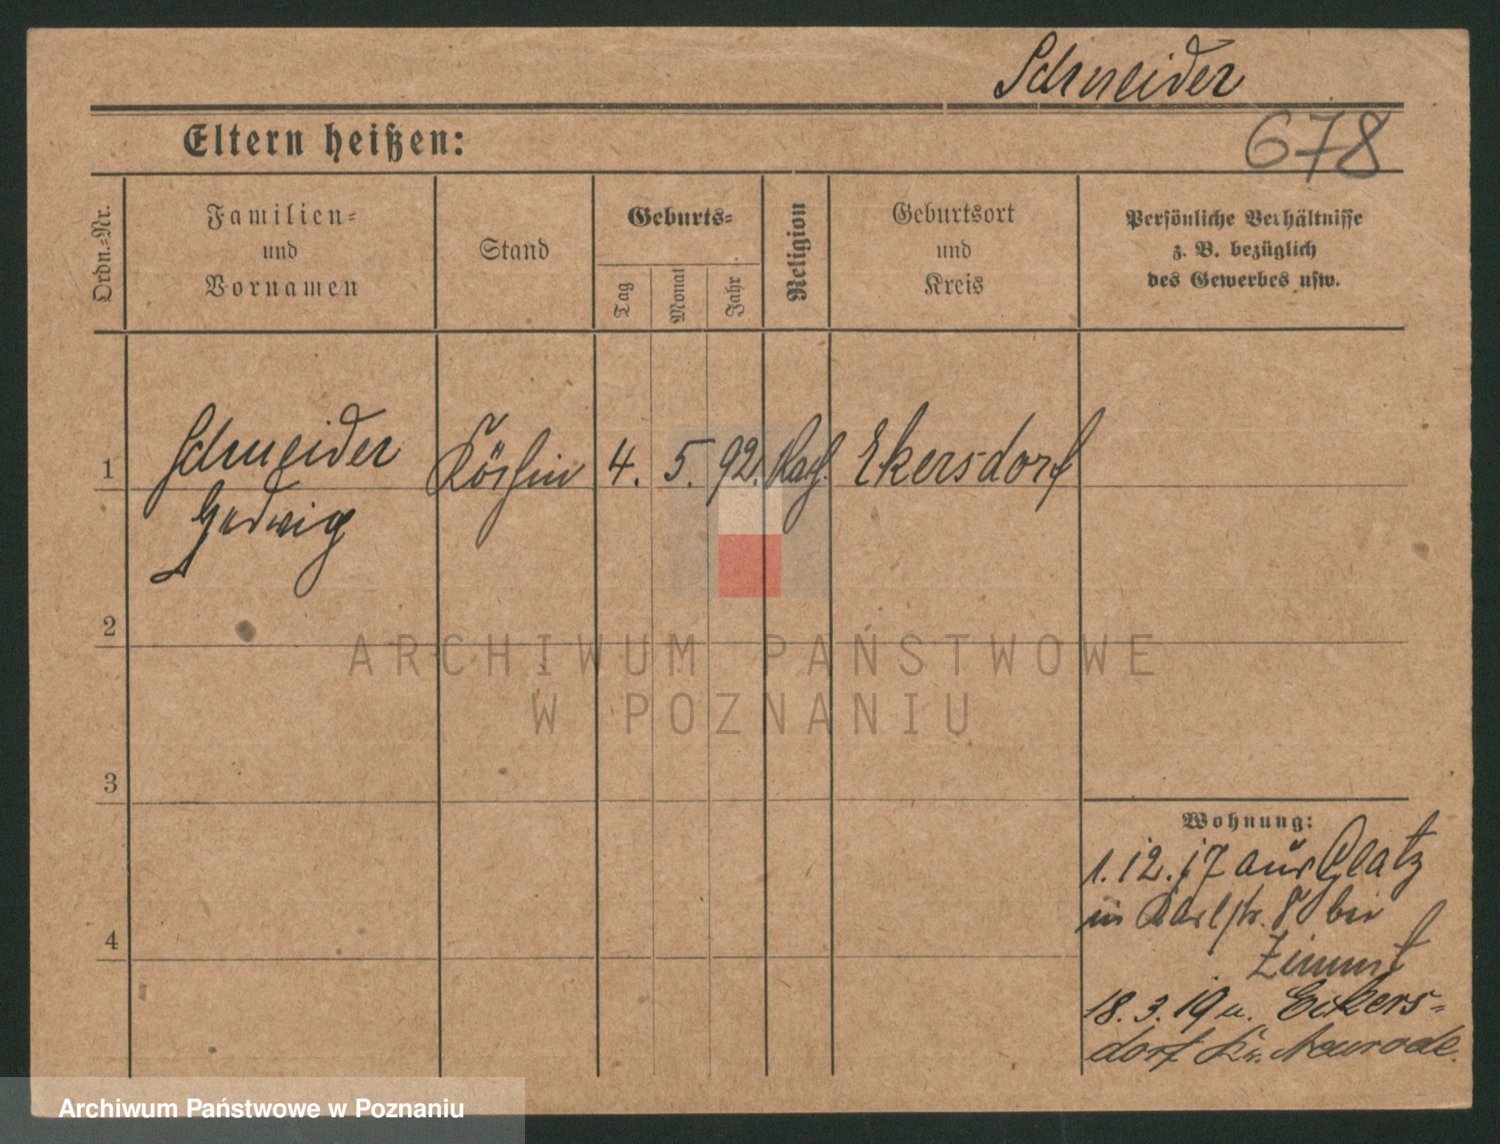 Schneider
Eltern heißen:
678
Ordn.-Nr.
Familien-
und
Vornamen
Stand
Geburts-
Tag
Monat
Jahr
Religion
Geburtsort
und
Kreis
Persönliche Verhältnisse
z. B. bezüglich
des Gewerbes usw.
1 Schneider Köchin 4. 5. 92. Kath. Ekersdorf
Hedwig
2
ARCHIWUM PAŃSTWOWE
W POZNANIU
3
Wohnung:
1.12.17 aus Glatz
in Karlstr. 8 bei
4
18.3.19 n. Eckers-
dorf Kr. Neurode.
Archiwum Państwowe w Poznaniu